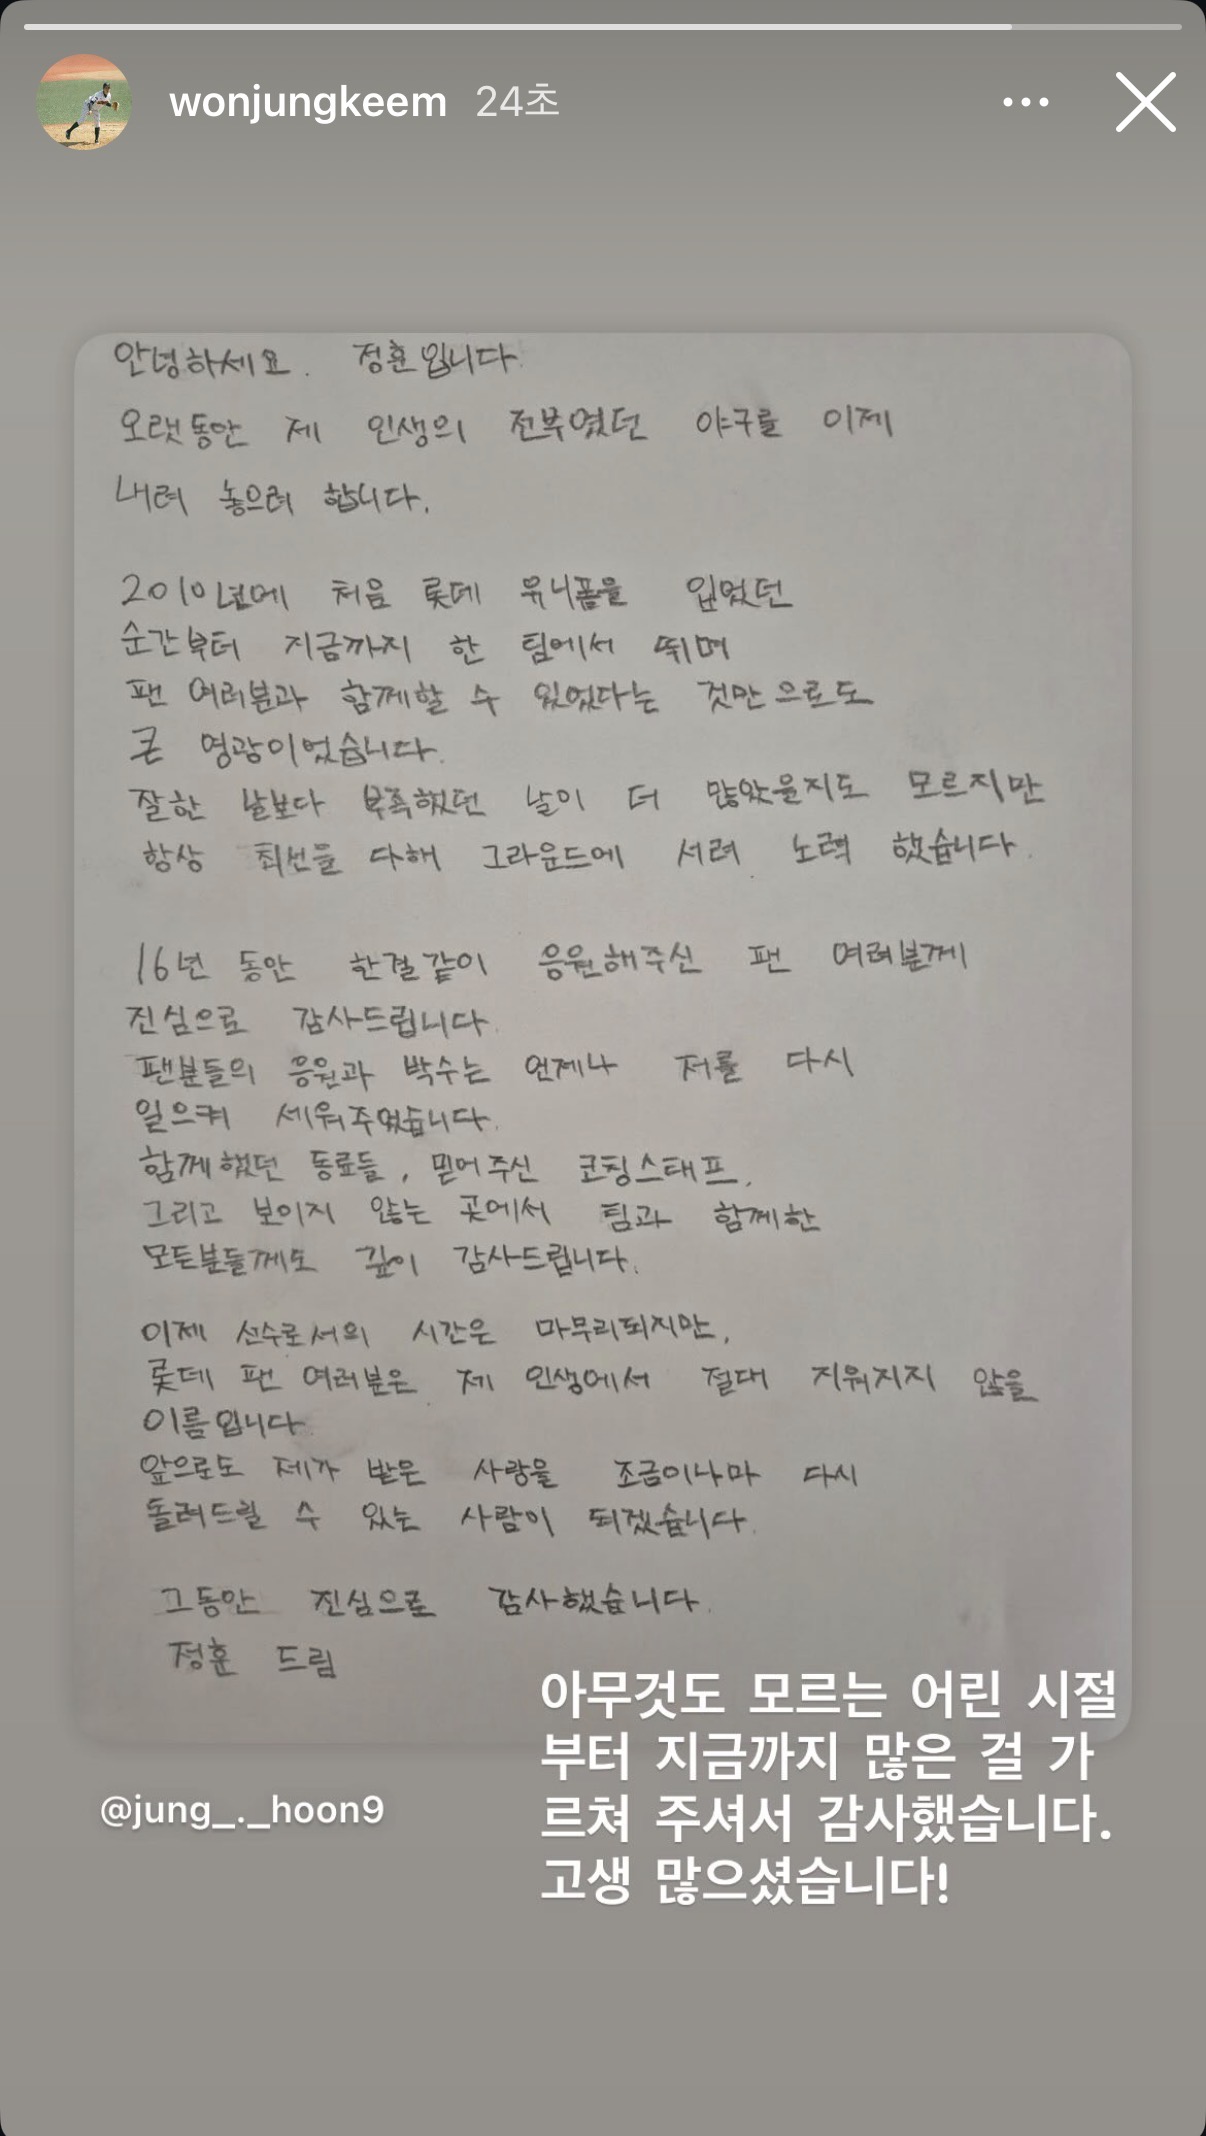 wonjungkeem 24초
안녕하세요. 정훈입니다.
오랫동안 제 인생의 전부였던 야구를 이제
내려 놓으려 합니다.
2010년에 처음 롯데 유니폼을 입었던
순간부터 지금까지 한 팀에서 뛰며
팬 여러분과 함께할 수 있었다는 것만으로도
큰 영광이었습니다.
잘한 날보다 부족했던 날이 더 많았을지도 모르지만
항상 최선을 다해 그라운드에 서려 노력 했습니다.
16년 동안 한결같이 응원해주신 팬 여러분께
진심으로 감사드립니다.
팬분들의 응원과 박수는 언제나 저를 다시
일으켜 세워주었습니다.
함께했던 동료들, 믿어주신 코칭스태프,
그리고 보이지 않는 곳에서 팀과 함께한
모든분들께도 깊이 감사드립니다.
이제 선수로서의 시간은 마무리되지만,
롯데 팬 여러분은 제 인생에서 절대 지워지지 않을
이름입니다
앞으로도 제가 받은 사랑을 조금이나마 다시
돌려드릴 수 있는 사람이 되겠습니다.
그동안 진심으로 감사했습니다.
정훈 드림
아무것도 모르는 어린 시절
부터 지금까지 많은 걸 가
르쳐 주셔서 감사했습니다.
고생 많으셨습니다!
@jung_._hoon9